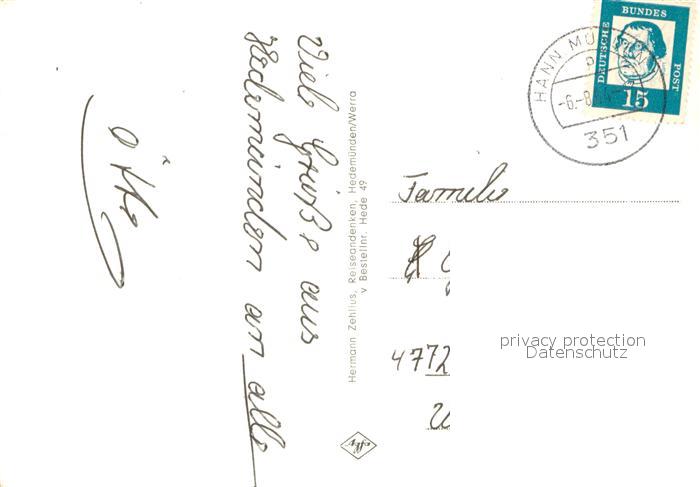 Viele Grüße aus
Hedemünden an alle
Hermann Zehlius, Reiseandenken, Hedemünden/Werra
v Bestellnr. Hede 49
BUNDES
DEUTSCHE
POST
15
HANN MÜ
-6.-8.
351
Familie
4772
privacy protection
Datenschutz